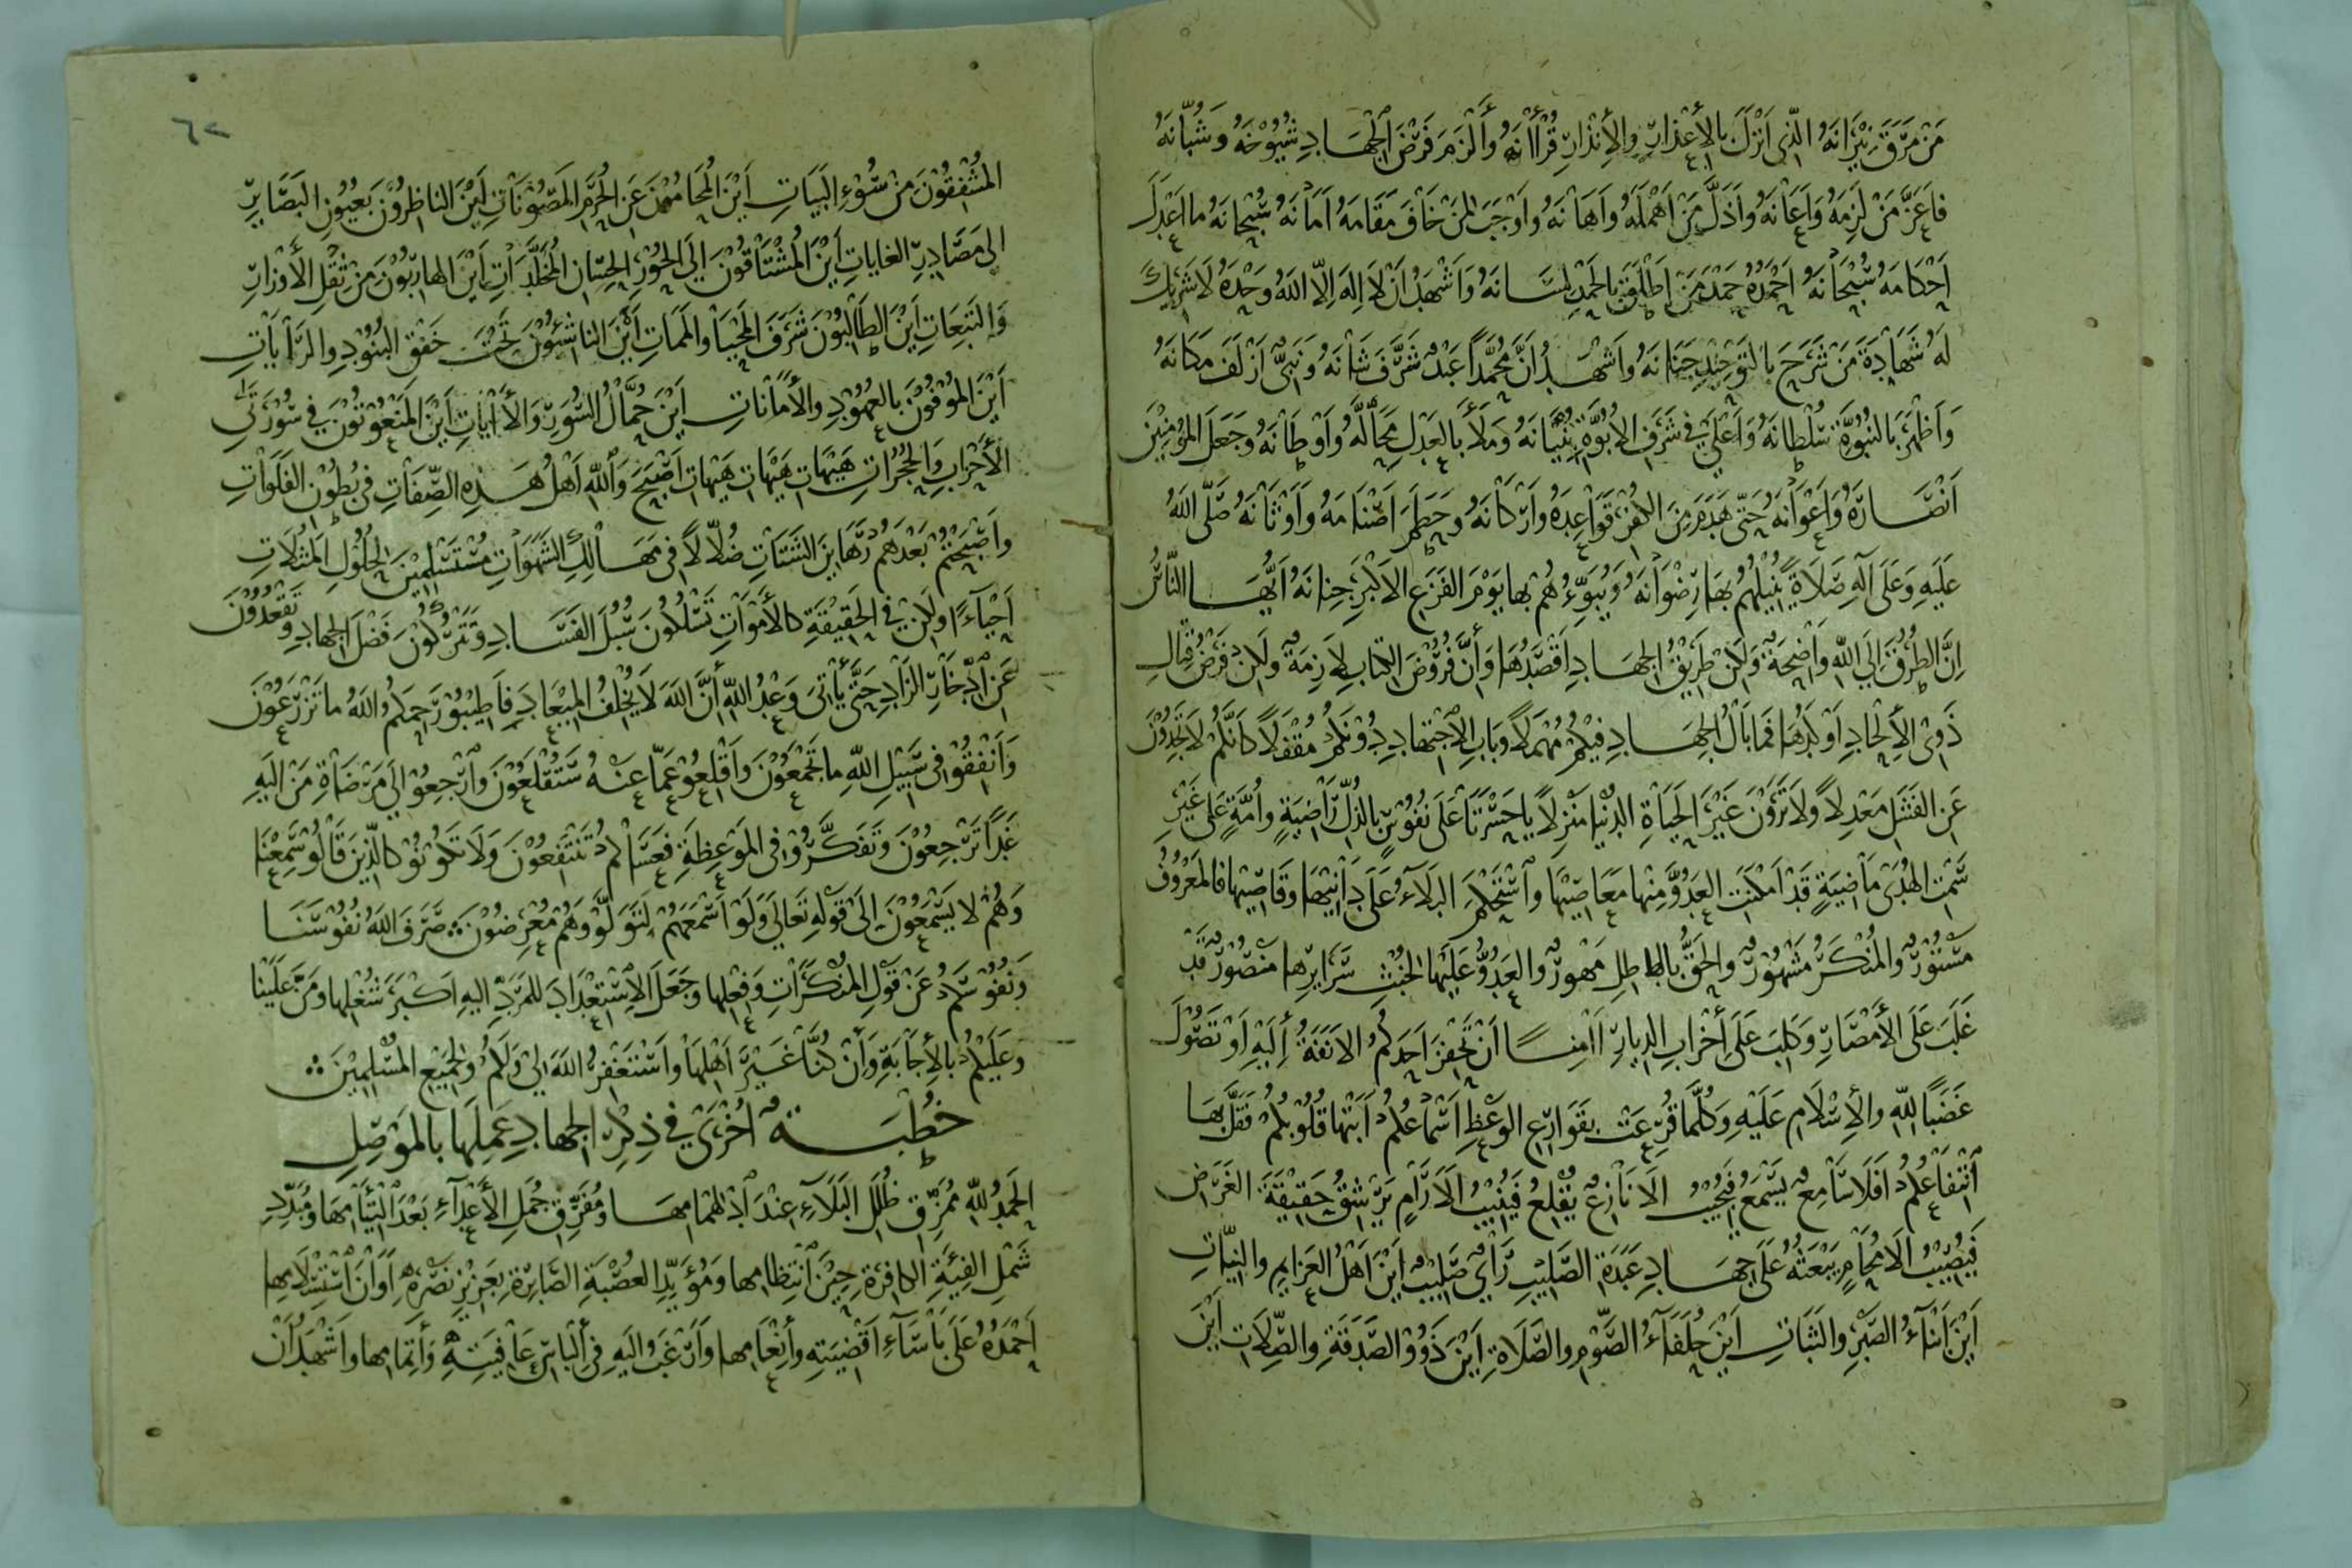 مَنْ مَرَّقَ نِيْرَانَهُ الَّذِى اَنْزَلَ بِالْأَعْذَارِ وَالْأِنْذَارِ قُرْأٰنَهُ وَأَلْزَمَ فَرْضَ الْجِهَادِ شُيُوْخَهُ وَشُبَّانَهُ
فَاَعَزَّ مَنْ لَزِمَهُ وَاَعَانَهُ وَاَذَلَّ مَنْ اَهْمَلَهُ وَاَهَانَهُ وَاَوْجَبَ لِمَنْ خَافَ مَقَامَهُ اَمَانَهُ سُبْحَانَهُ مَا اَعْدَلَ
اَحْكَامَهُ سُبْحَانَهُ اَحْمَدُهُ حَمْدَ مَنْ اَطْلَقَ بِالْحَمْدِ لِسَانَهُ وَاَشْهَدُ اَنْ لَا اِلٰهَ اِلَّا اللهُ وَحْدَهُ لَا شَرِيْكَ
لَهُ شَهَادَةَ مَنْ شَرَحَ بِالتَّوْحِيْدِ جَنَانَهُ وَاَشْهَدُ اَنَّ مُحَمَّدًا عَبْدٌ شَرَّفَ شَانَهُ وَنَبِىٌّ اَزْلَفَ مَكَانَهُ
وَاَظْهَرَ بِالنُّبُوَّةِ سُلْطَانَهُ وَاَعْلَى فِى شَرَفِ الْاُبُوَّةِ بُنْيَانَهُ وَمَلَأَ بِالْعَدْلِ مَحَالَّهُ وَاَوْطَانَهُ وَجَعَلَ الْمُؤْمِنِيْنَ
اَنْصَارَهُ وَاَعْوَانَهُ حَتَّى هَدَمَ مِنَ الْكُفْرِ قَوَاعِدَهُ وَاَرْكَانَهُ وَحَطَمَ اَصْنَامَهُ وَاَوْثَانَهُ صَلَّى اللهُ
عَلَيْهِ وَعَلَى اٰلِهِ صَلَاةً يُنِيْلُهُمْ بِهَا رِضْوَانَهُ وَيُبَوِّءُهُمْ بِهَا يَوْمَ الْفَزَعِ الْاَكْبَرِ جِنَانَهُ اَيُّهَا النَّاسُ
اِنَّ الطُّرُقَ اِلَى اللهِ وَاضِحَةٌ وَلٰكِنْ طَرِيْقُ الْجِهَادِ اَقْصَدُهَا وَأَنَّ فُرُوْضَ الْكِتَابِ لَازِمَةٌ وَلٰكِنْ فَرْضُ قِتَالِ
ذَوِى الْأِلْحَادِ اَوْكَدُهَا فَمَا بَالُ الْجِهَادِ فِيْكُمْ مُهْمَلًا وَبَابِ الْاِجْتِهَادِ دُوْنَكُمْ مُقْفَلًا كَاَنَّكُمْ لَا تَجِدُوْنَ
عَنِ الْفَشَلِ مَعْدِلًا وَلَا تَرَوْنَ غَيْرَ الْحَيَاةِ الدُّنْيَا مَنْزِلًا يَا حَسْرَتَا عَلَى نُفُوْسٍ بِالذُّلِّ رَاضِيَةٍ وَاُمَّةٍ عَلَى غَيْرِ
سَمْتِ الْهُدَى مَاضِيَةٍ قَدْ اَمْكَنَتِ الْعَدُوَّ مِنْهَا مَعَاصِيْهَا وَاسْتَحْكَمَ الْبَلَاءُ عَلَى دَانِيْهَا وَقَاصِيْهَا فَالْمَعْرُوْفُ
مَسْتُوْرٌ وَالْمُنْكَرُ مَشْهُوْرٌ وَالْحَقُّ بِالْبَاطِلِ مَقْهُوْرٌ وَالْعَدُوُّ عَلَيْهَا لِخُبْثِ سَرَايِرِهَا مَنْصُوْرٌ قَدْ
غَلَبَ عَلَى الْأَمْصَارِ وَكَلِبَ عَلَى أَخْرَابِ الدِّيَارِ اٰمِنًا اَنْ تَحْفِزَ اَحَدَكُمُ الْاَنَفَةُ إِلَيْهِ اَوْ تَصُوْلَ
غَضَبًا لِلّٰهِ وَالْاِسْلَامِ عَلَيْهِ وَكُلَّمَا قُرِعَتْ بِقَوَارِعِ الْوَعْظِ اَسْمَاعُكُمْ اَبَتْهَا قُلُوْبُكُمْ فَقَلَّ بِهَا
اِنْتِفَاعُكُمْ اَفَلَا سَامِعٌ يَسْمَعُ فَيُجِيْبُ اَلَا نَازِعٌ يُقْلِعُ فَيُنِيْبُ اَلَا رَامٍ يَرْشُقُ حَقِيْقَةَ الْغَرَضِ
فَيُصِيْبُ اَلَا مُحَامٍ يَبْعَثُهُ عَلَى جِهَادِ عَبَدَةِ الصَّلِيْبِ رَأْىٌ صَلِيْبٌ اَيْنَ اَهْلُ الْعَزَايِمِ وَالنِّيَّاتِ
اَيْنَ اَبْنَاءُ الصَّبْرِ وَالثَّبَاتِ اَيْنَ حُلَفَاءُ الصَّوْمِ وَالصَّلَاةِ اَيْنَ ذَوُوْ الصَّدَقَةِ وَالصِّلَاتِ اَيْنَ
٦٢
الْمُشْفِقُوْنَ مِنْ سُوْءِ الْبَيَاتِ اَيْنَ الْمُحَامُوْنَ عَنِ الْحُرَمِ الْمَصُوْنَاتِ اَيْنَ النَّاظِرُوْنَ بِعُيُوْنِ الْبَصَايِرِ
اِلَى مَصَادِرِ الْغَايَاتِ اَيْنَ الْمُشْتَاقُوْنَ اِلَى الْحُوْرِ الْحِسَانِ الْمُخَلَّدَاتِ اَيْنَ الْهَارِبُوْنَ مِنْ ثِقْلِ الْأَوْزَارِ
وَالتَّبِعَاتِ اَيْنَ الطَّالِبُوْنَ شَرَفَ الْمَحْيَا وَالْمَمَاتِ اَيْنَ النَّاشِئُوْنَ تَحْتَ خَفْقِ الْبُنُوْدِ وَالرَّايَاتِ
اَيْنَ الْمُوْفُوْنَ بِالْعُهُوْدِ وَالْأَمَانَاتِ اَيْنَ حُمَّالُ السُّوَرِ وَالْأٰيَاتِ اَيْنَ الْمَنْعُوْتُوْنَ فِى سُوْرَتَىِ
الْأَحْزَابِ وَالْحُجُرَاتِ هَيْهَاتِ هَيْهَاتِ هَيْهَاتِ اَصْبَحَ وَاللهِ اَهْلُ هٰذِهِ الصِّفَاتِ فِى بُطُوْنِ الْفَلَوَاتِ
وَاَصْبَحْتُمْ بَعْدَهُمْ رَهَايِنَ الشَّتَاتِ ضُلَّالًا فِى مَهَالِكِ الشَّهَوَاتِ مُسْتَسْلِمِيْنَ لِحُلُوْلِ الْمَثُلَاتِ
اَحْيَاءً وَلٰكِنْ فِى الْحَقِيْقَةِ كَالْأَمْوَاتِ تَسْلُكُوْنَ سُبُلَ الْفَسَادِ وَتَتْرُكُوْنَ فَضْلَ الْجِهَادِ وَتَقْعُدُوْنَ
عَنِ ادِّخَارِ الزَّادِ حَتَّى يَأْتِىَ وَعْدُ اللهِ أَنَّ اللهَ لَا يُخْلِفُ الْمِيْعَادَ فَاَطِيْبُوْ رَحِمَكُمُ اللهُ مَا تَزْرَعُوْنَ
وَاَنْفِقُوْا فِى سَبِيْلِ اللهِ مَا تَجْمَعُوْنَ وَاَقْلِعُوْ عَمَّا عَنْهُ سَتُقْلَعُوْنَ وَارْجِعُوْا اِلَى مَرْضَاةِ مَنْ اِلَيْهِ
غَدًا تَرْجِعُوْنَ وَتَفَكَّرُوْا فِى الْمَوْعِظَةِ فَعَسَاكُمْ تَنْتَفِعُوْنَ وَلَا تَكُوْنُوْ كَالَّذِيْنَ قَالُوْ سَمِعْنَا
وَهُمْ لَا يَسْمَعُوْنَ اِلَى قَوْلِهِ تَعَالَى وَلَوْ اَسْمَعَهُمْ لَتَوَلَّوْ وَهُمْ مُعْرِضُوْنَ ؞ صَرَفَ اللهُ نُفُوْسَنَا
وَنُفُوْسَكُمْ عَنْ قَوْلِ الْمُنْكَرَاتِ وَفِعْلِهَا وَجَعَلَ الْاِسْتِعْدَادَ لِلْمَرَدِّ اِلَيْهِ اَكْبَرَ شُغْلِهَا وَمَنَّ عَلَيْنَا
وَعَلَيْكُمْ بِالْأِجَابَةِ وَأِنْ كُنَّا غَيْرَ اَهْلِهَا وَاَسْتَغْفِرُ اللهَ لِى وَلَكُمْ وَلِجَمِيْعِ الْمُسْلِمِيْنَ ؞
خُطْبَةٌ اُخْرَى فِى ذِكْرِ الْجِهَادِ عَمِلَهَا بِالْمَوْصِلِ
اَلْحَمْدُ لِلّٰهِ مُمَزِّقِ ظُلَلِ الْبَلَاءِ عِنْدَ ادْلِهْمَامِهَا وَمُفَرِّقِ جُمَلِ الْأَعْدَاءِ بَعْدَ الْتِئَامِهَا وَمُبَدِّدِ
شَمْلِ الْفِئَةِ الْكَافِرَةِ حِيْنَ انْتِظَامِهَا وَمُؤَيِّدِ الْعُصْبَةِ الصَّابِرَةِ بِعَزِيْزِ نَصْرِهِ اَوَانَ اسْتِسْلَامِهَا
اَحْمَدُهُ عَلَى بَأْسَاءِ اَقْضِيَتِهِ وَأِنْعَامِهَا وَاَرْغَبُ اِلَيْهِ فِى أِلْبَاسِ عَافِيَتِهِ وَأِتْمَامِهَا وَاَشْهَدُ اَنْ